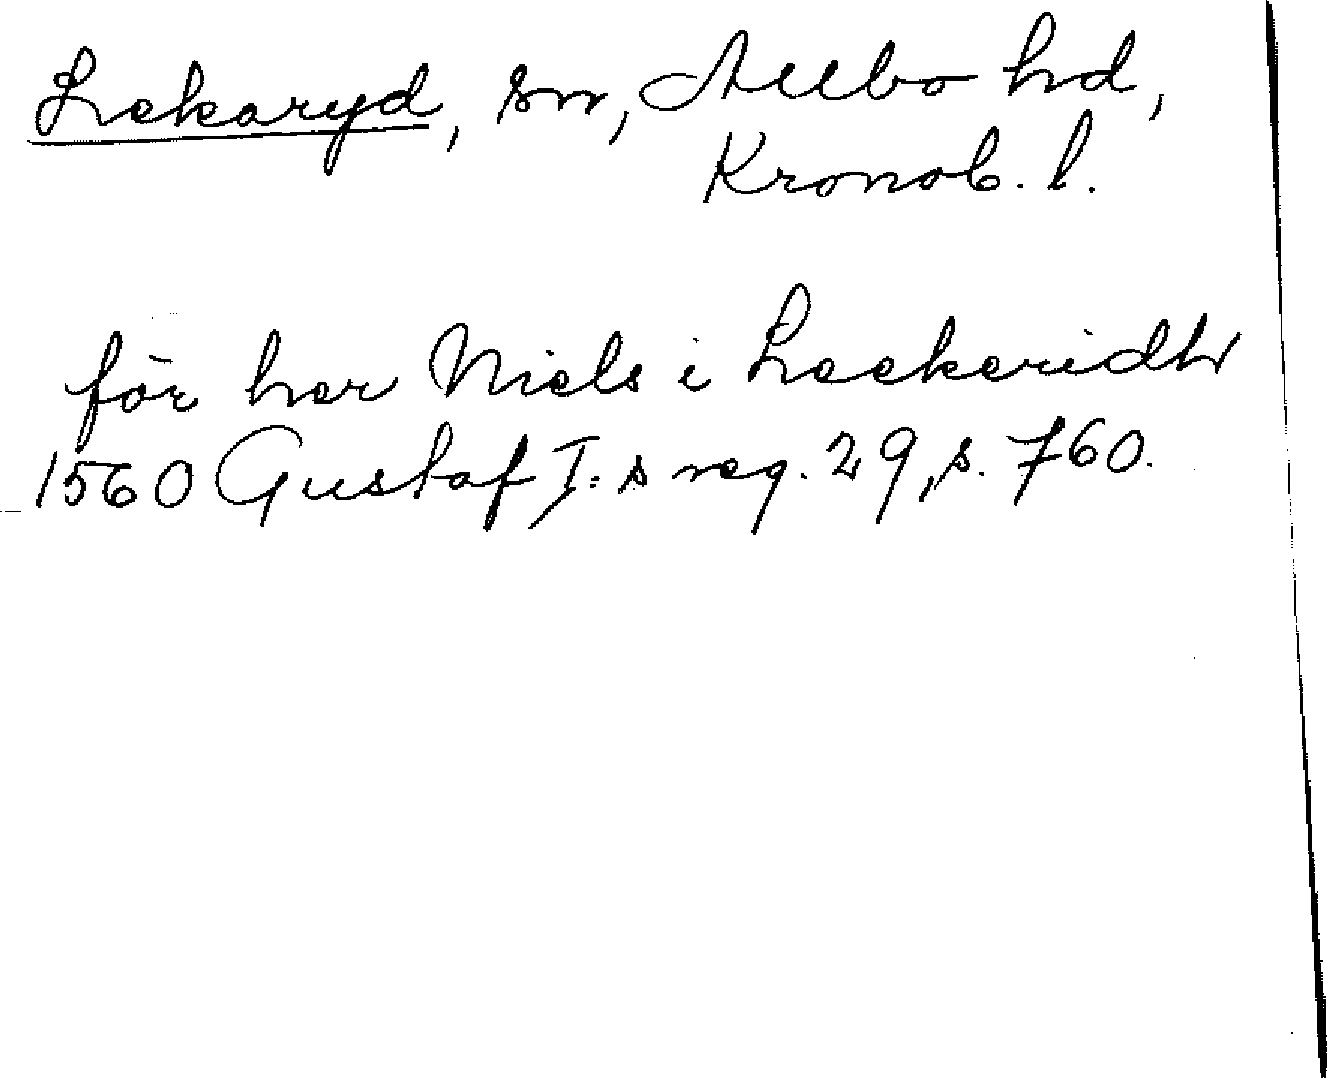 Lekaryd, sn, Allbo hd,
Kronob. l.
för her Niels i Leekeridh
1560 Gustaf I:s reg. 29, s. 760.